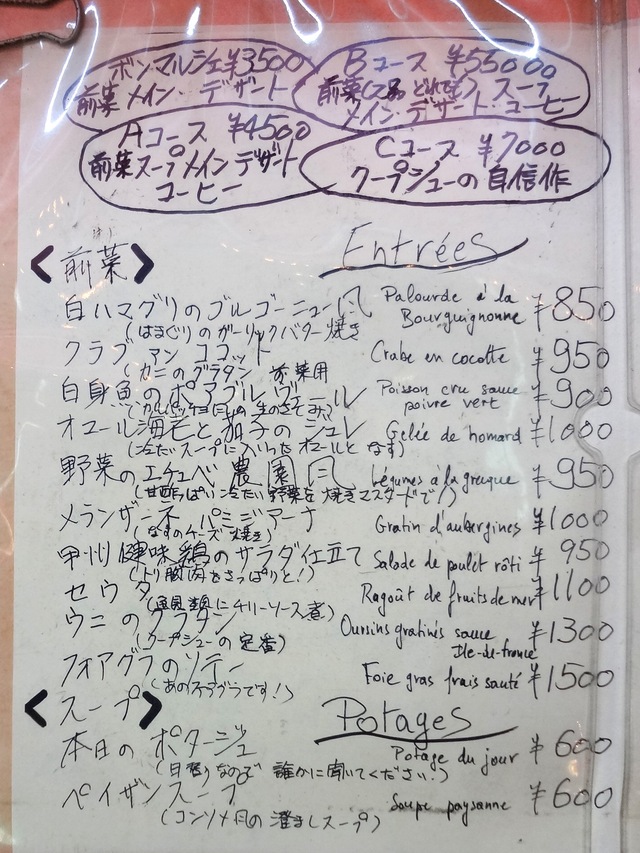 ボン・マルシェ ¥3500
前菜 メイン・デザート
Bコース ¥5500
前菜(2品 どれでも) スープ
メイン・デザート・コーヒー
Aコース ¥4500
前菜 スープ メイン デザート
コーヒー
Cコース ¥7000
クープシューの自信作
<前菜> Entrées
白ハマグリのブルゴーニュ風 Palourde à la Bourguignonne ¥850
(はまぐりのガーリックバター焼き
クラブ アン ココット Crabe en cocotte ¥950
(カニのグラタン 前菜用
白身魚のポアブルヴェール Poisson cru sauce poivre vert ¥900
オマール海老と茄子のジュレ Gelée de homard ¥1000
(冷たいスープに入ったオマールと なす)
野菜のエチュベ 農園風 Légumes à la grecque ¥950
(甘酸っぱい冷たい野菜を焼きマスタードで!)
メランザーネ パミジアーナ Gratin d'aubergines ¥1000
(なすのチーズ焼き)
甲州健味鶏のサラダ仕立て Salade de poulet rôti ¥950
(トリ胸肉をさっぱりと!)
セウタ Ragoût de fruits de mer ¥1100
(魚貝類にチリーソース煮)
ウニのグラタン Oursins gratinés sauce Ile-de-france ¥1300
(クープシューの定番)
フォアグラのソテー Foie gras frais sauté ¥1500
(あのフォアグラです!)
<スープ> Potages
本日の ポタージュ Potage du jour ¥600
(日替りなので 誰かに聞いてください!)
ペイザンスープ Soupe paysanne ¥600
(コンソメ風の澄ましスープ)